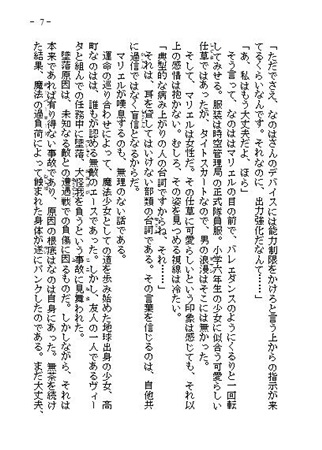 - 7 -
「ただでさえ、なのはさんのデバイスには能力制限をかけろと言う上からの指示が来
てるくらいなんです。それなのに、出力強化だなんて……」
「あ、私はもう大丈夫だよ、ほら」
そう言って、なのははマリエルの目の前で、バレエダンスのようにくるりと一回転
してみせる。服装は時空管理局の正式隊員服。小学六年生の少女に似合う可愛らしい
仕草ではあったが、タイトスカートなので、男の浪漫はそこには無かった。
そして、マリエルは女性だ。その仕草に可愛らしいという印象は感じても、それ以
上の感情は抱かない。むしろ、その姿を見つめる視線は冷たい。
「典型的な病み上がりの人の台詞ですからね、それ……」
それは、耳を貸してはいけない部類の台詞である。その言葉を信じるのは、自他共
に過信ではなく盲信となるからだ。
マリエルが嘆息するのも、無理のない話である。
運命の巡り合わせによって、魔法少女としての道を歩み始めた地球出身の少女、高
町なのはは、誰もが認める無敵のエースであった。しかし、友人の一人であるヴィー
タと組んでの任務中に墜落、大怪我を負うという事故に見舞われた。
墜落原因は、未知なる敵との遭遇戦での負傷に因るものだ。しかしながら、それは
本来であれば有り得ない事故であり、原因の根底はなのは自身にあった。無茶を続け
た結果、魔法の過負荷によって蝕まれた身体が遂にパンクしたのである。まだ大丈夫、